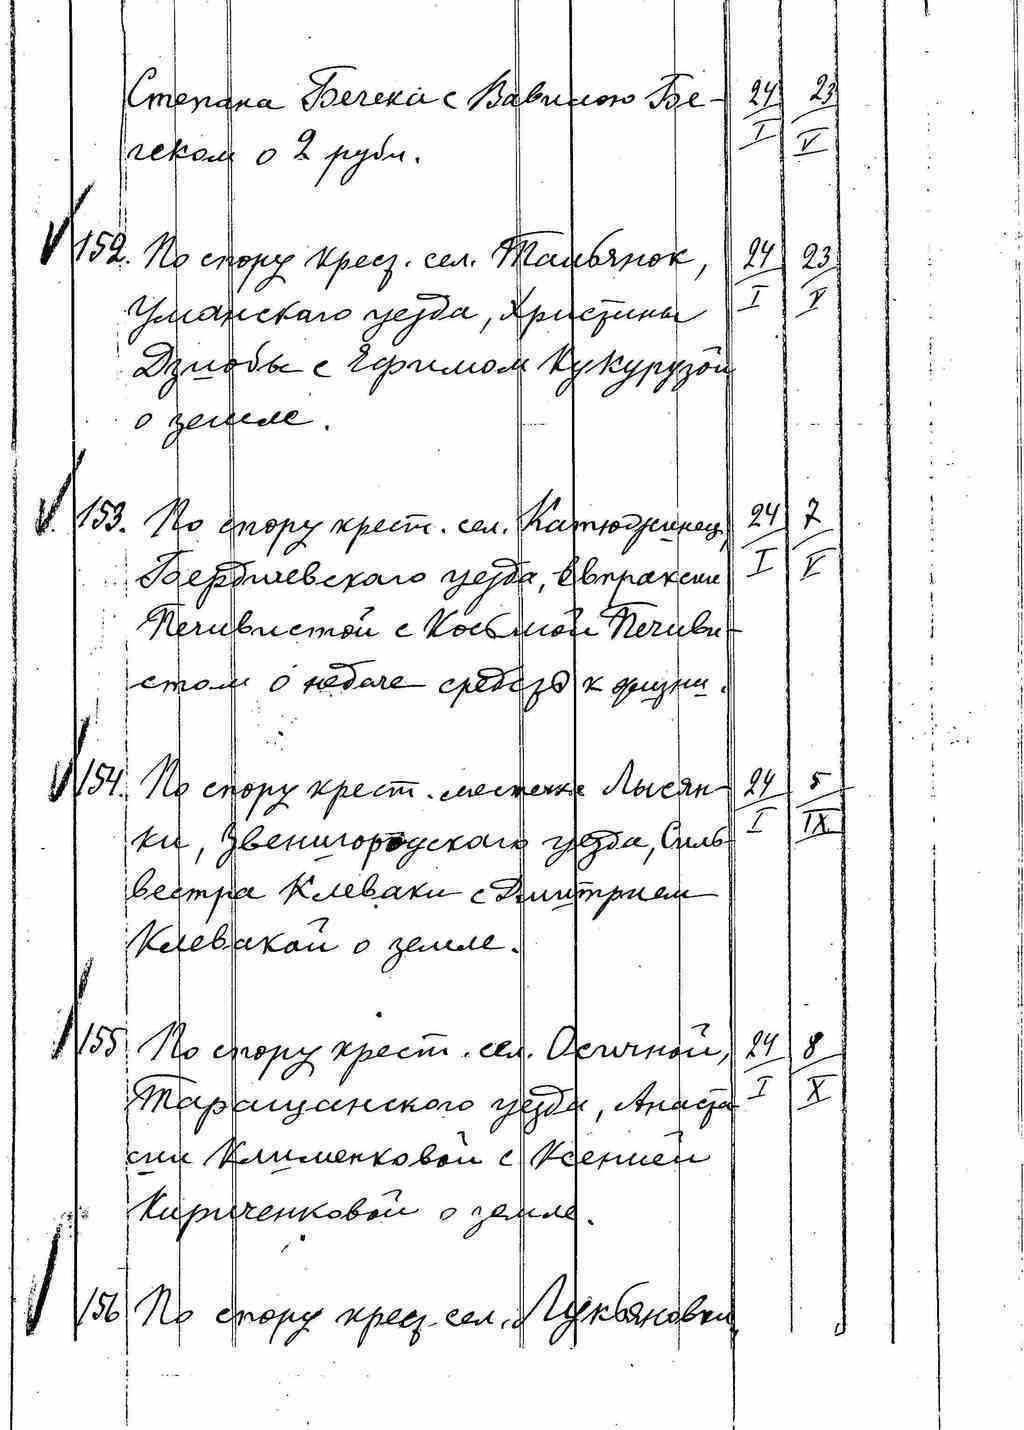 Степана Бечека с Вавилою Бе- 24/I 23/V
чеком о 2 рубл.
152. По спору крест. сел. Тальянок, 24/I 23/V
Уманского уезда, Христины
Дзюбы с Ефимом Кукурузой
о земле.
153. По спору крест. сел. Катюжинец, 24/I 7/V
Бердичевского уезда, Евпраксии
Печивистой с Косьмой Печиви-
стом о недаче средств к жизни.
154. По спору крест. местечка Лысян- 24/I 5/IX
ки, Звенигородского уезда, Силь-
вестра Клеваки с Дмитрием
Клевакой о земле.
155 По спору крест. сел. Осичной, 24/I 8/X
Таращанского уезда, Анаста-
сии Клименковой с Ксенией
Кириченковой о земле.
156 По спору крест. сел. Лукьяновки,